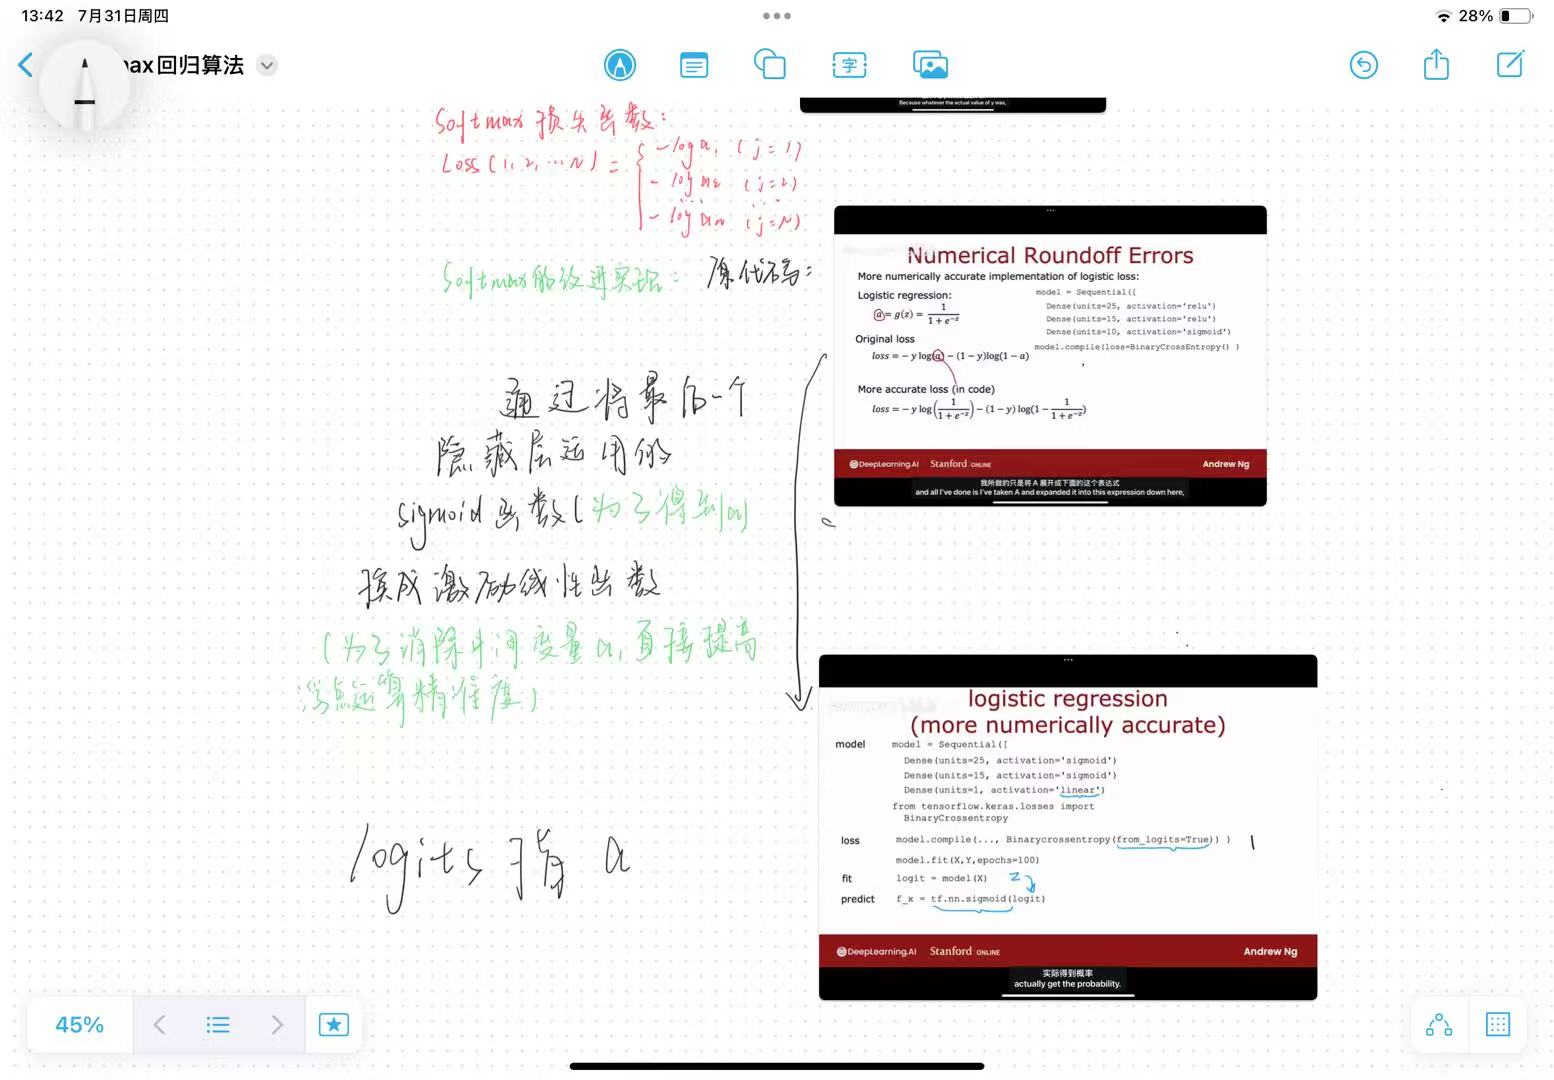 13:42 7月31日周四
28%
ax回归算法
字
Because whatever the actual value of y was,
Softmax 损失函数:
Loss(1,2,…N) = { -log a₁ (j=1)
- log a₂ (j=2)
… …
- log aN (j=N)
Softmax的改进实现: 原代码:
Numerical Roundoff Errors
More numerically accurate implementation of logistic loss:
Logistic regression:
a = g(z) = 1 / (1 + e^-z)
Original loss
loss = − y log(a) − (1 − y)log(1 − a)
More accurate loss (in code)
loss = − y log(1 / (1 + e^-z)) − (1 − y) log(1 − 1 / (1 + e^-z))
model = Sequential([
Dense(units=25, activation='relu')
Dense(units=15, activation='relu')
Dense(units=10, activation='sigmoid')
model.compile(loss=BinaryCrossEntropy() )
DeepLearning.AI Stanford ONLINE Andrew Ng
我所做的只是将 A 展开成下面的这个表达式
and all I've done is I've taken A and expanded it into this expression down here,
通过将最后一个
隐藏层运用的
sigmoid函数(为了得到a)
换成激励线性函数
(为了消除中间变量a,直接提高
浮点运算精准度)
logits 指 a
logistic regression
(more numerically accurate)
model
model = Sequential([
Dense(units=25, activation='sigmoid')
Dense(units=15, activation='sigmoid')
Dense(units=1, activation='linear')
from tensorflow.keras.losses import
BinaryCrossentropy
loss model.compile(..., Binarycrossentropy(from_logits=True)) )
model.fit(X,Y,epochs=100)
fit logit = model(X) z
predict f_x = tf.nn.sigmoid(logit)
DeepLearning.AI Stanford ONLINE Andrew Ng
实际得到概率
actually get the probability.
45%